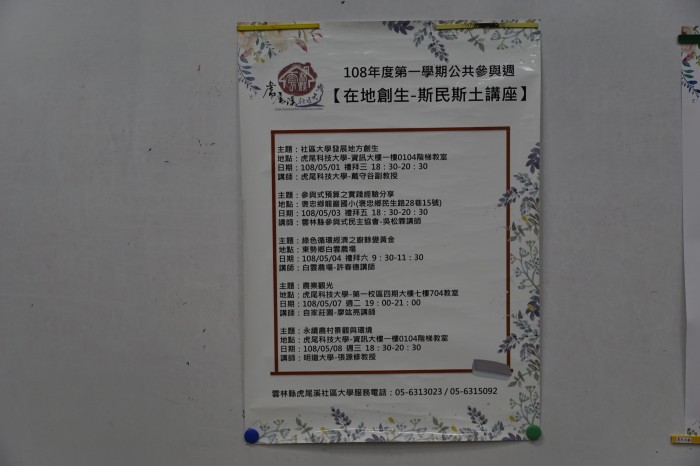 108年度第一學期公共參與週
【在地創生-斯民斯土講座】
主題：社區大學發展地方創生
地點：虎尾科技大學-資訊大樓一樓0104階梯教室
日期：108/05/01 禮拜三 18：30-20：30
講師：虎尾科技大學-戴守谷副教授
主題：參與式預算之實踐經驗分享
地點：褒忠鄉龍巖國小(褒忠鄉民生路28巷15號)
日期：108/05/03 禮拜五 18：30-20：30
講師：雲林縣參與式民主協會-吳松霖講師
主題：綠色循環經濟之廚餘變黃金
地點：東勢鄉白雲農場
日期：108/05/04 禮拜六 9：30-11：30
講師：白雲農場-許春德講師
主題：農業觀光
地點：虎尾科技大學-第一校區四期大樓七樓704教室
日期：108/05/07 週二 19：00-21：00
講師：自家莊園-廖竑亮講師
主題：永續農村景觀與環境
地點：虎尾科技大學-資訊大樓一樓0104階梯教室
日期：108/05/08 週三 18：30-20：30
講師：明道大學-張源修教授
雲林縣虎尾溪社區大學服務電話：05-6313023 / 05-6315092